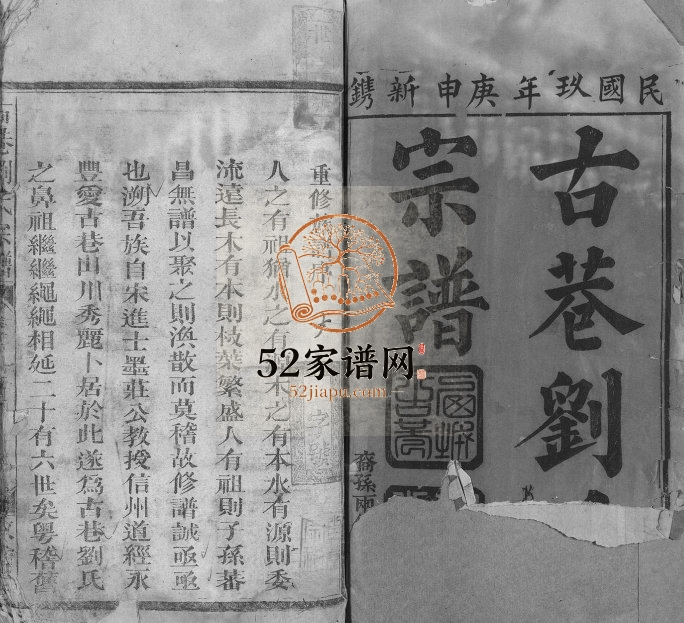 民國玖年庚申新鐫
古巷劉
宗譜
裔孫雨
重修
人之有祖猶水之有 木之有本水有源則委
流遠長木有本則枝葉繁盛人有祖則子孫蕃
昌無譜以聚之則渙散而莫稽故修譜誠亟亟
也溯吾族自宋進士墨莊公教授信州道經永
豐愛古巷山川秀麗卜居於此遂為古巷劉氏
之鼻祖繼繼繩繩相延二十有六世矣粵稽舊
52家谱网
52jiapu.com